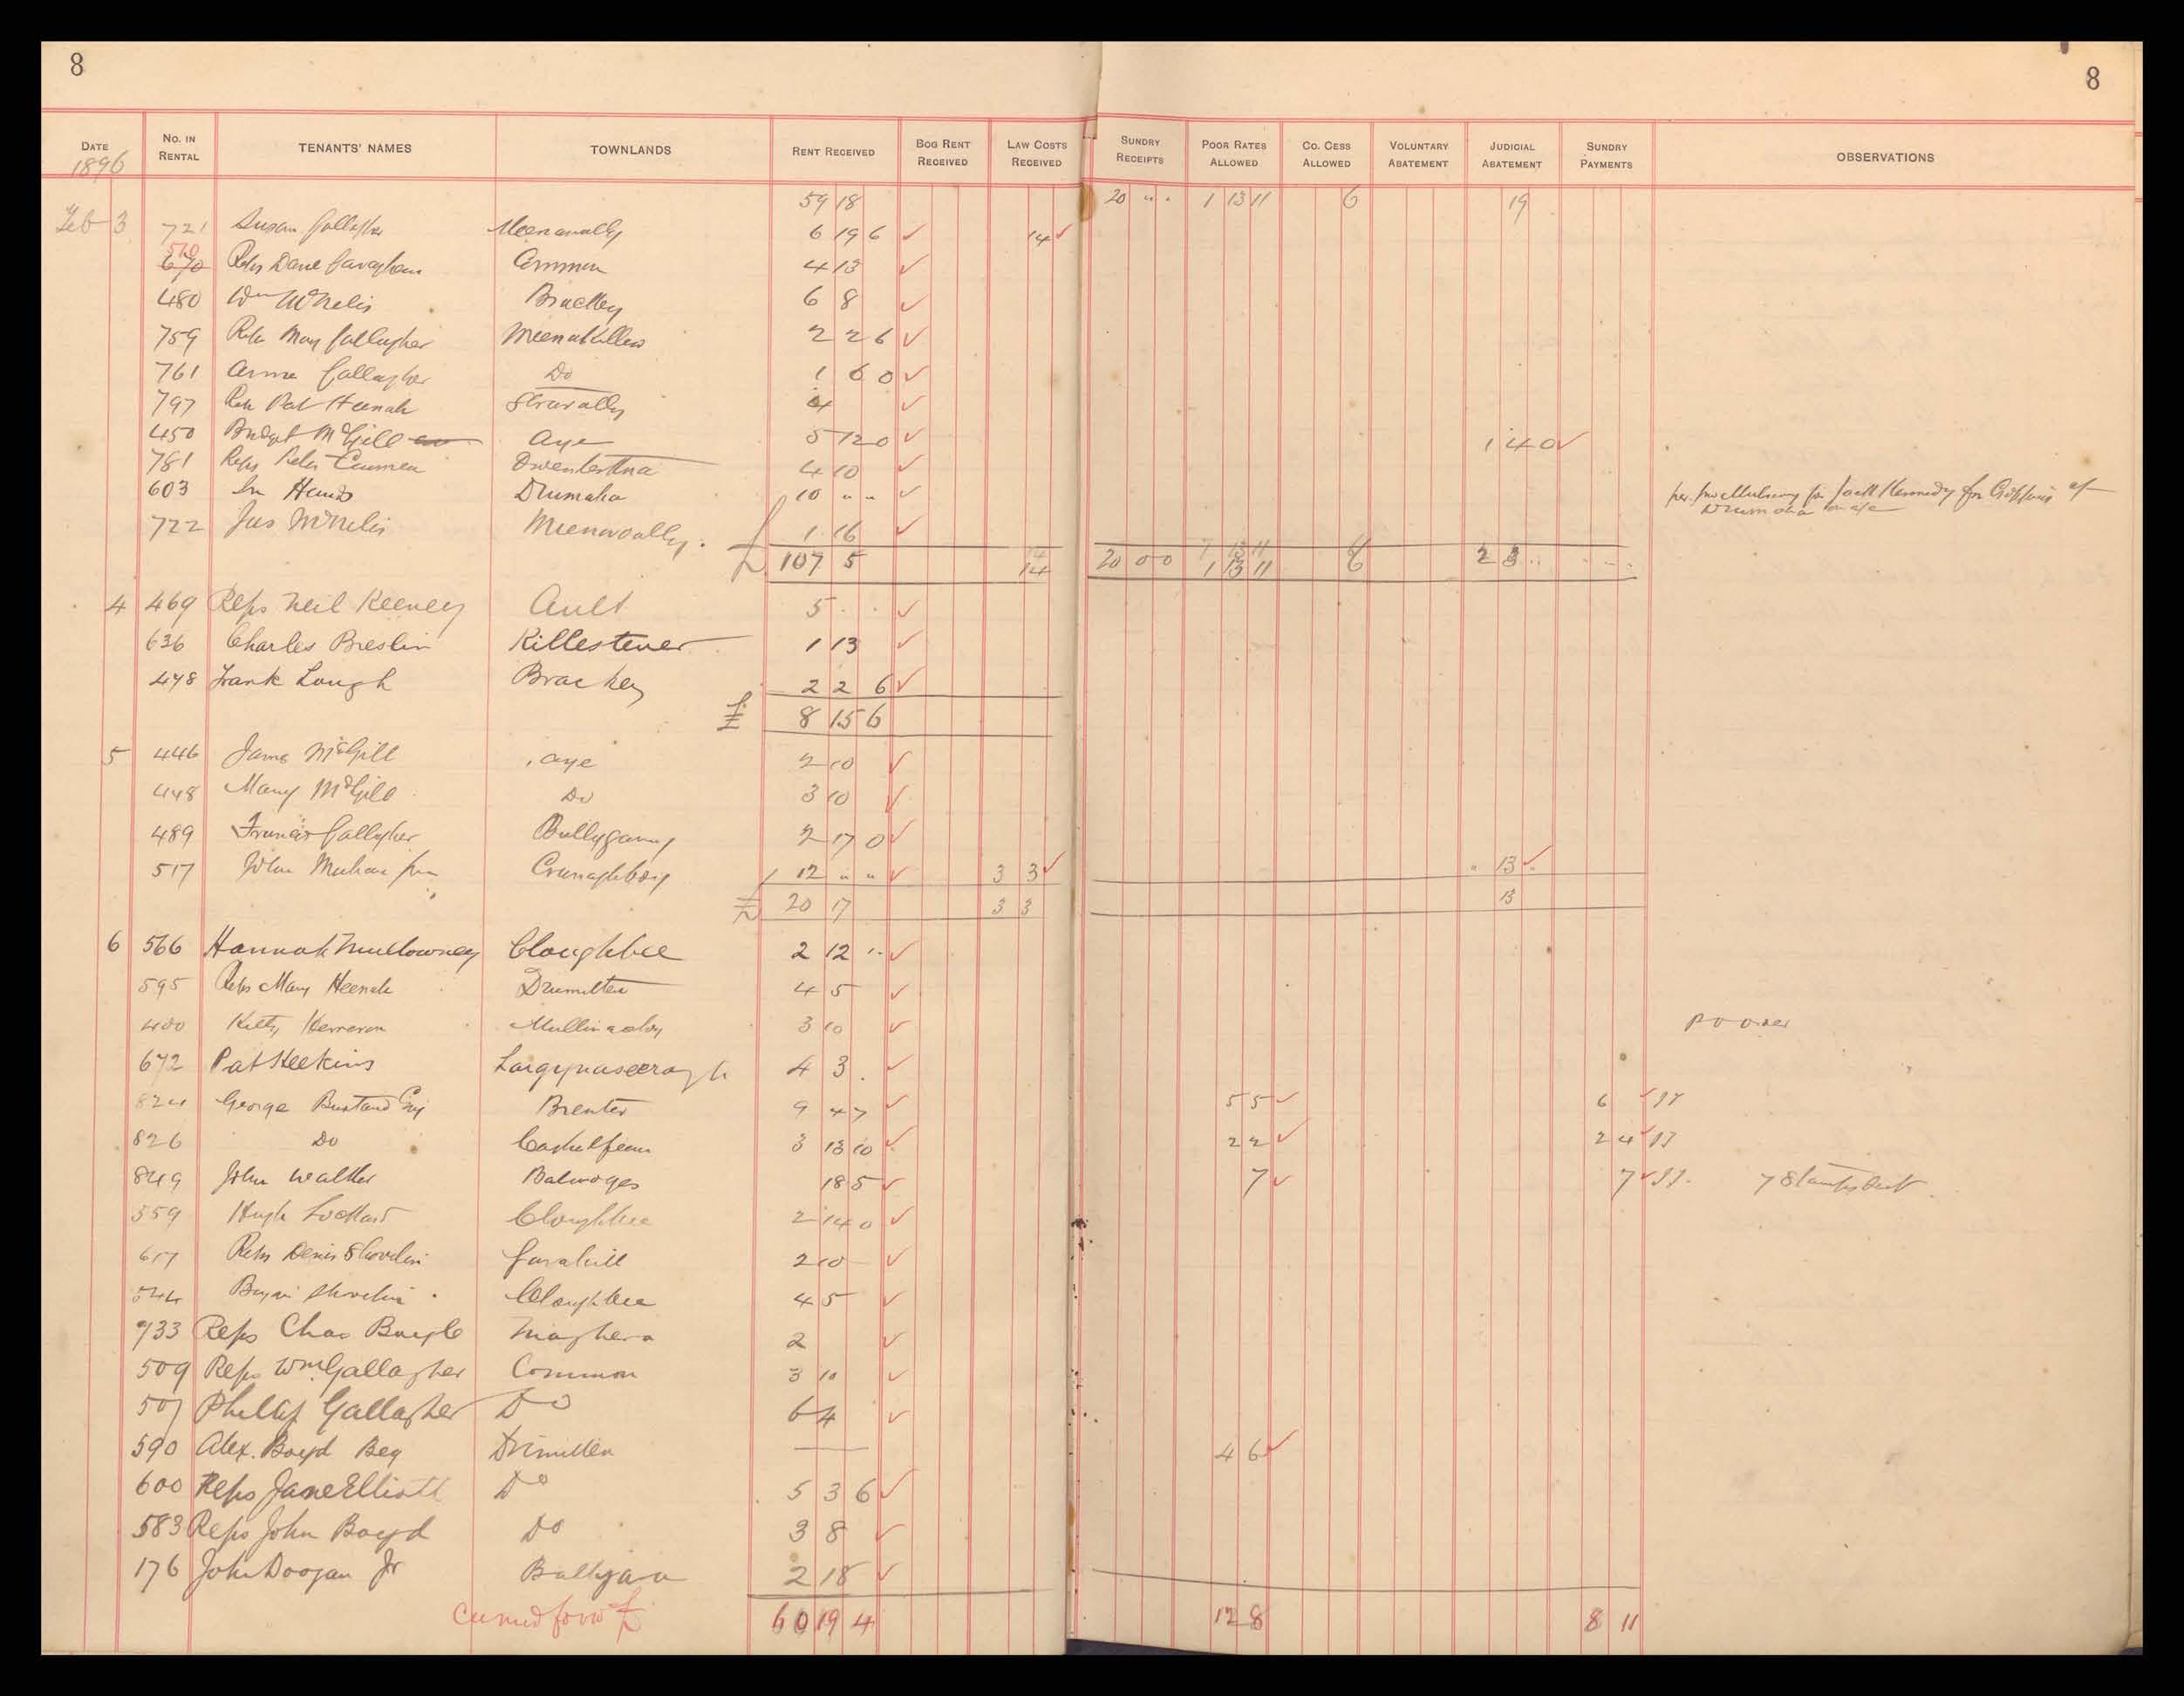 8
8
DATE 1896 No. IN RENTAL TENANTS' NAMES TOWNLANDS RENT RECEIVED BOG RENT RECEIVED LAW COSTS RECEIVED SUNDRY RECEIPTS POOR RATES ALLOWED CO. CESS ALLOWED VOLUNTARY ABATEMENT JUDICIAL ABATEMENT SUNDRY PAYMENTS OBSERVATIONS
59 18 20 " " 1 13 11 6 19
Feb 3 721 Susan Gallagher Meenavally 6 19 6 ✓ 14 ✓
510
670 Reps Dane Gavaghan Common 4 13 ✓
480 Wm McNelis Brackey 6 8 ✓
759 Reps Mary Gallagher Meenakillew 2 2 6 ✓
761 Anne Gallagher Do 1 6 0 ✓
797 Reps Pat Heenah Stravally 4 ✓
450 Bridget McGill Aye 5 12 0 ✓ 1 4 0 ✓
781 Reps Peter Cannon 4 10 ✓
603 Drumaha 10 " " ✓ per for Jack Kennedy for
722 Jas McNelis Meenavally. 1 16 ✓
£ 107 5 14 20 0 0 1 13 11 6 2 3 "
4 469 Reps Neil Keeney Ault 5 " " ✓
636 Charles Breslin Killestever 1 13 ✓
478 Frank Lough Brackey 2 2 6 ✓
£ 8 15 6
5 446 James McGill Aye 2 10 ✓
448 Mary McGill Do 3 10 ✓
489 Francis Gallagher 2 17 0 ✓
517 John Cranaghboy 12 " " ✓ 3 3 ✓ " 13 " ✓
£ 20 17 3 3 13
6 566 Hannah Mullowney Cloughbee 2 12 " ✓
595 Reps Mary Heenah Drimitten 4 5 ✓
400 Kitty Herreron Mullinacloy 3 10 ✓ P O Order
672 Pat Keekins Largynaseeragh 4 3 . ✓
824 George Bustard Esq Brenter 9 4 7 ✓ 5 5 ✓ 6 ✓
826 Do 3 13 10 ✓ 2 2 ✓ 2 4 ✓
849 John Walker Balwoges 18 5 ✓ 7 ✓ 7 ✓ 7 Stamps
559 Hugh Lockart Cloughbee 2 14 0 ✓
617 Reps Denis Shovelin 2 10 ✓
544 Shovelin Cloughbee 4 5 ✓
733 Reps Chas Boyle Maghera 2 ✓
509 Reps Wm Gallagher Common 3 10 ✓
507 Phillip Gallagher Do 6 4 ✓
590 Alex. Boyd Beg Drimitten — 4 6 ✓
600 Reps Jane Elliott Do 5 3 6 ✓
583 Reps John Boyd Do 3 8 ✓
176 John Doogan Jr 2 18 ✓
Carried forwd £ 60 19 4 12 8 8 11